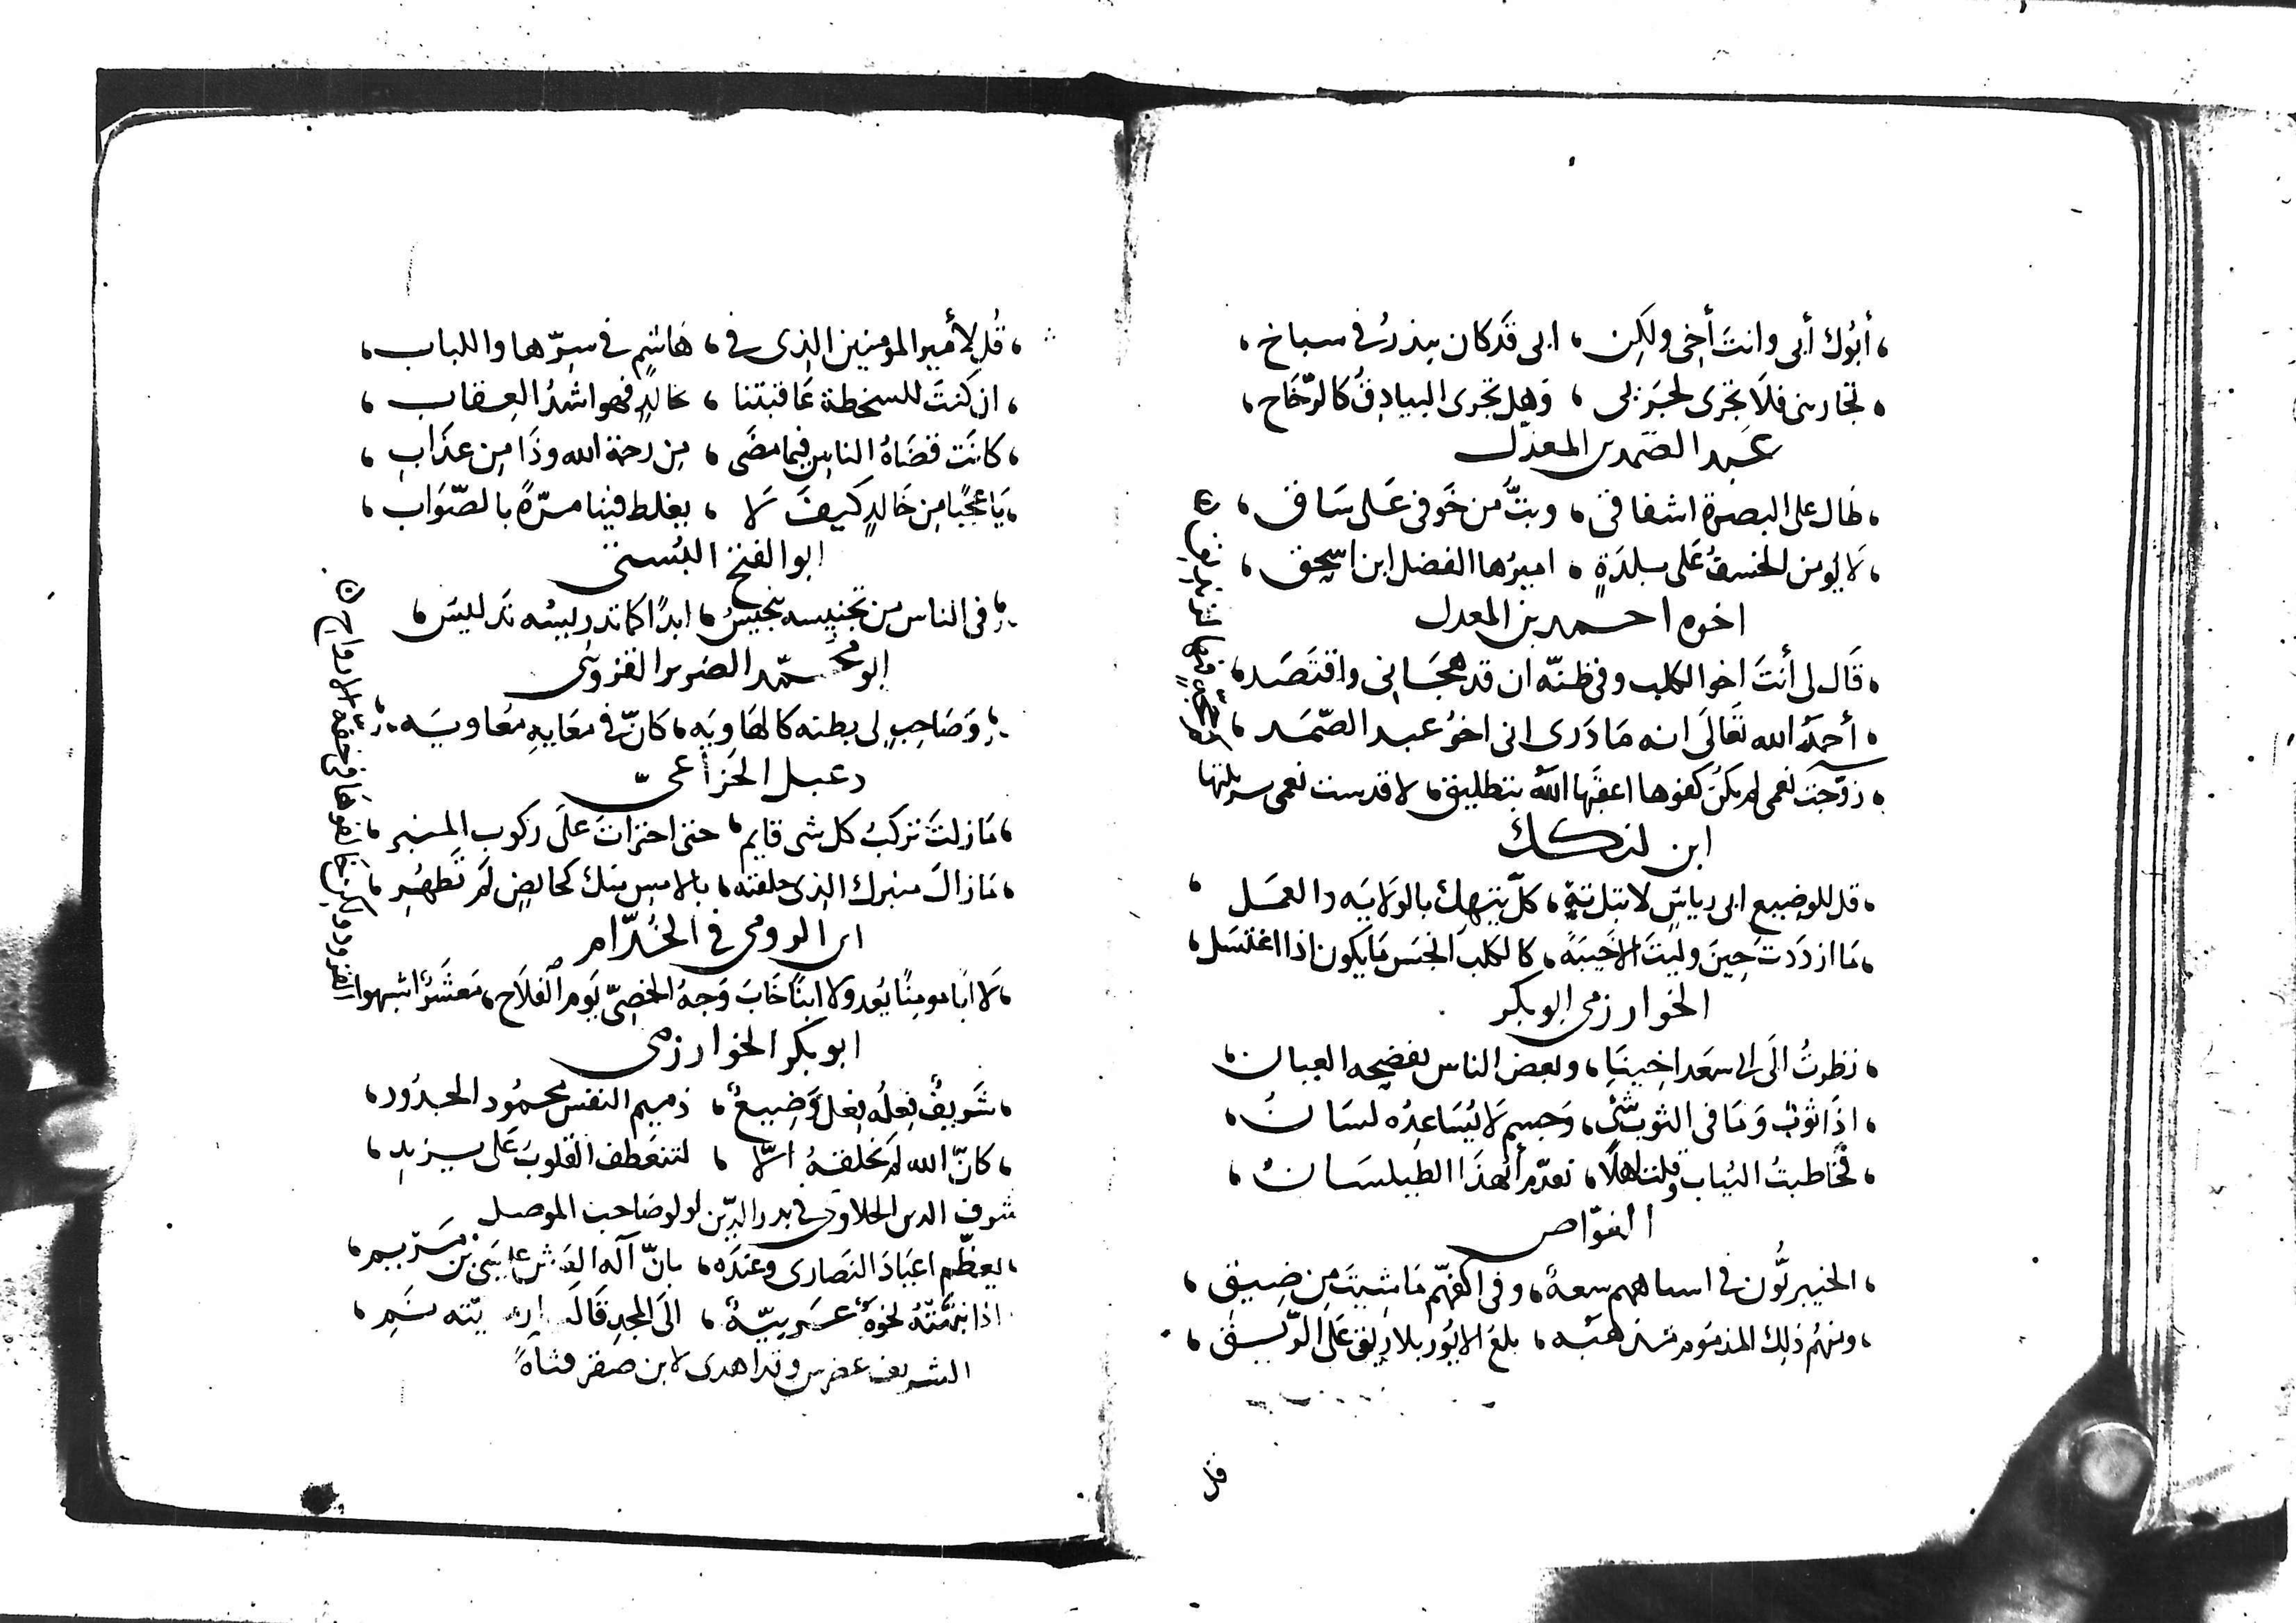 ، أبُوك أبى وانتَ أخِى ولَكِن ، ابى قَد كان يبذرُ فى سباخ ،
، تجارينى فلَا تجرى لحبَزبى ، وَهل تجرى البيادِقُ كالرّخَاخ ،
عبد الصّمد بن المعذّل
، طال على البصرة اشفاقى ، وبتُّ من خَوفى عَلى سَاق ،
، لا يُومن الخسفُ عَلى بلدَةٍ ، اميرُها الفضل ابن اسحق ،
اخوه احمد بن المعدل
، قَال لى أنتَ اخوا الكلب وفى ظنّه ان قد هجَانى واقتَصَد ،
، أحمَدُ الله تعَالَى انه مَا دَرى انى اخوُ عبد الصّمَد ،
، زوّجتَ نعمى لم يكنُ كفوها اعقبَها اللَّهُ بتطليق ، لا قدست نعمى سربلتها
ابن لنكك
، قل للوضيع ابى رياشٍ لا تبل تِهْ ، كلّ تيهك بالوَلايَه والعمَل ،
، مَا ازدَدتَ حِينَ وليتَ الا خِسَّةً ، كالكلب انجَس مَا يكون اذا اغتسَل ،
الخوارزمى ابو بكر
، نظرتُ الَى ابى سعَد اخينَا ، وبعض الناس يفضحه العيان ،
، اذَا ثوبٌ وَمَا فى الثوب شئٌ ، وَجسم لَا يُسَاعِدُه لسَانُ ،
، فخَاطبتُ الثياب وقلت اهلًا ، تقدّم أيُهذَا الطيلسَانُ ،
الغوّاص
، الخيبريُّون فى اسماههم سعةٌ ، وفى اكفهّم مَا شِيتَ مِن ضِيق ،
، ومنهُم ذلِك المذمَوم مذهبه ، بلغُ الايُور بلا رِيق عَلى الرّيق ،
قل
، قُل لِأمير المومنين الذِى فى ، هَاشِم فى سِرّها واللباب ،
، ان كنتَ للسخطة عَاقبتنا ، بخَالدٍ فهو اشدُ العِقاب ،
، كانَت قضَاهُ الناسِ فيما مضَى ، مِن رحمة الله وذَا مِن عذَاب ،
، يَا عجبًا مِن خَالدٍ كَيفَ لَا ، يغلط فينا مرّةً بالصّوَاب ،
ابو الفتح البُستى
فى الناس من تجنيسه تنجيسُ ، ابدًا كما تدريسُه تدليسَ ،
ابو محمّد الضرير القزوينى
وَصَاحِبٍ لى بطنه كالهَاوِيَه ، كَانّ فى معَايهِ مُعَاويَه
دعبل الخُزاعىّ
، مَا زلتَ تركبُ كل شى قايم ، حتى اجتراتَ علَى ركوب المنبر ،
، مَا زالَ منبرك الذِى خلفته ، بالامسِ منك كحَايضٍ لَم تَطهُرِ ،
ابن الرومى فى الخُدّام
، لَا ابًا مومنًا يُعد ولا ابنًا خَابَ وَجهُ الخصِىّ يَوم الفَلَاح ، مَعشَرٌ اشبهوا
القرود ولكن خَالفوها فى خفة الارواح
ابو بكر الخوارزمى
، شَريفٌ فِعلُه فِعلٌ وَضِيعٌ ، ذميم النفس محمُود الجدُود ،
، كانّ الله لَم يخلقهُ الّا ، لتنعَطف القلوبُ عَلى يزيدِ ،
شرف الدين الحلاوى فى بدر الدّين لولو صَاحب الموصل
، يعظّم اعيَادَ النصَارى وعندَه ، بانّ آله العَرش عيسَى بن مَرْيم ،
اذا نبّهَتْهُ نخوَةٌ عَرَبيّةٌ ، الَى المجد قَالَت